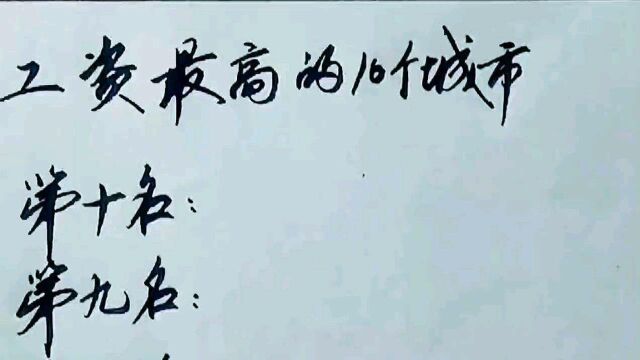 工资最高的10个城市
第十名:
第九名: